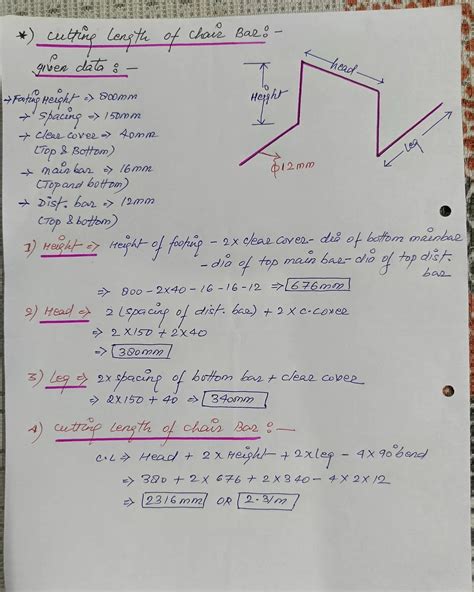 *) Cutting Length of Chair Bar:-
given data:-
→ Footing Height => 800mm
→ Spacing => 150mm
→ Clear cover => 40mm
(Top & Bottom)
→ mainbar => 16mm
(Top and bottom)
→ Dist. bar => 12mm
(Top & bottom)
Height
head
Leg
ϕ12mm
1) Height => Height of footing - 2x clear cover - dia of bottom mainbar
- dia of top main bar - dia of top dist.
bar
=> 800 - 2x40 - 16 - 16 - 12 => 676mm
2) Head => 2 (spacing of dist. bar) + 2 x c.cover
=> 2 x 150 + 2 x 40
=> 380mm
3) Leg => 2x spacing of bottom bar + clear cover
=> 2x150 + 40 => 340mm
4) Cutting Length of Chair Bar:-
C.L => Head + 2 x Height + 2 x leg - 4 x 90° bend
=> 380 + 2 x 676 + 2 x 340 - 4 x 2 x 12
=> 2316mm OR 2.31m